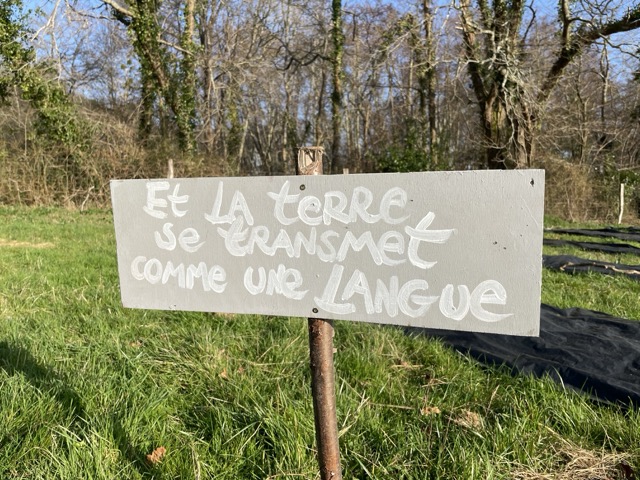 Et LA teRRe
se tRANSMet
COMMe UNe LANGUe